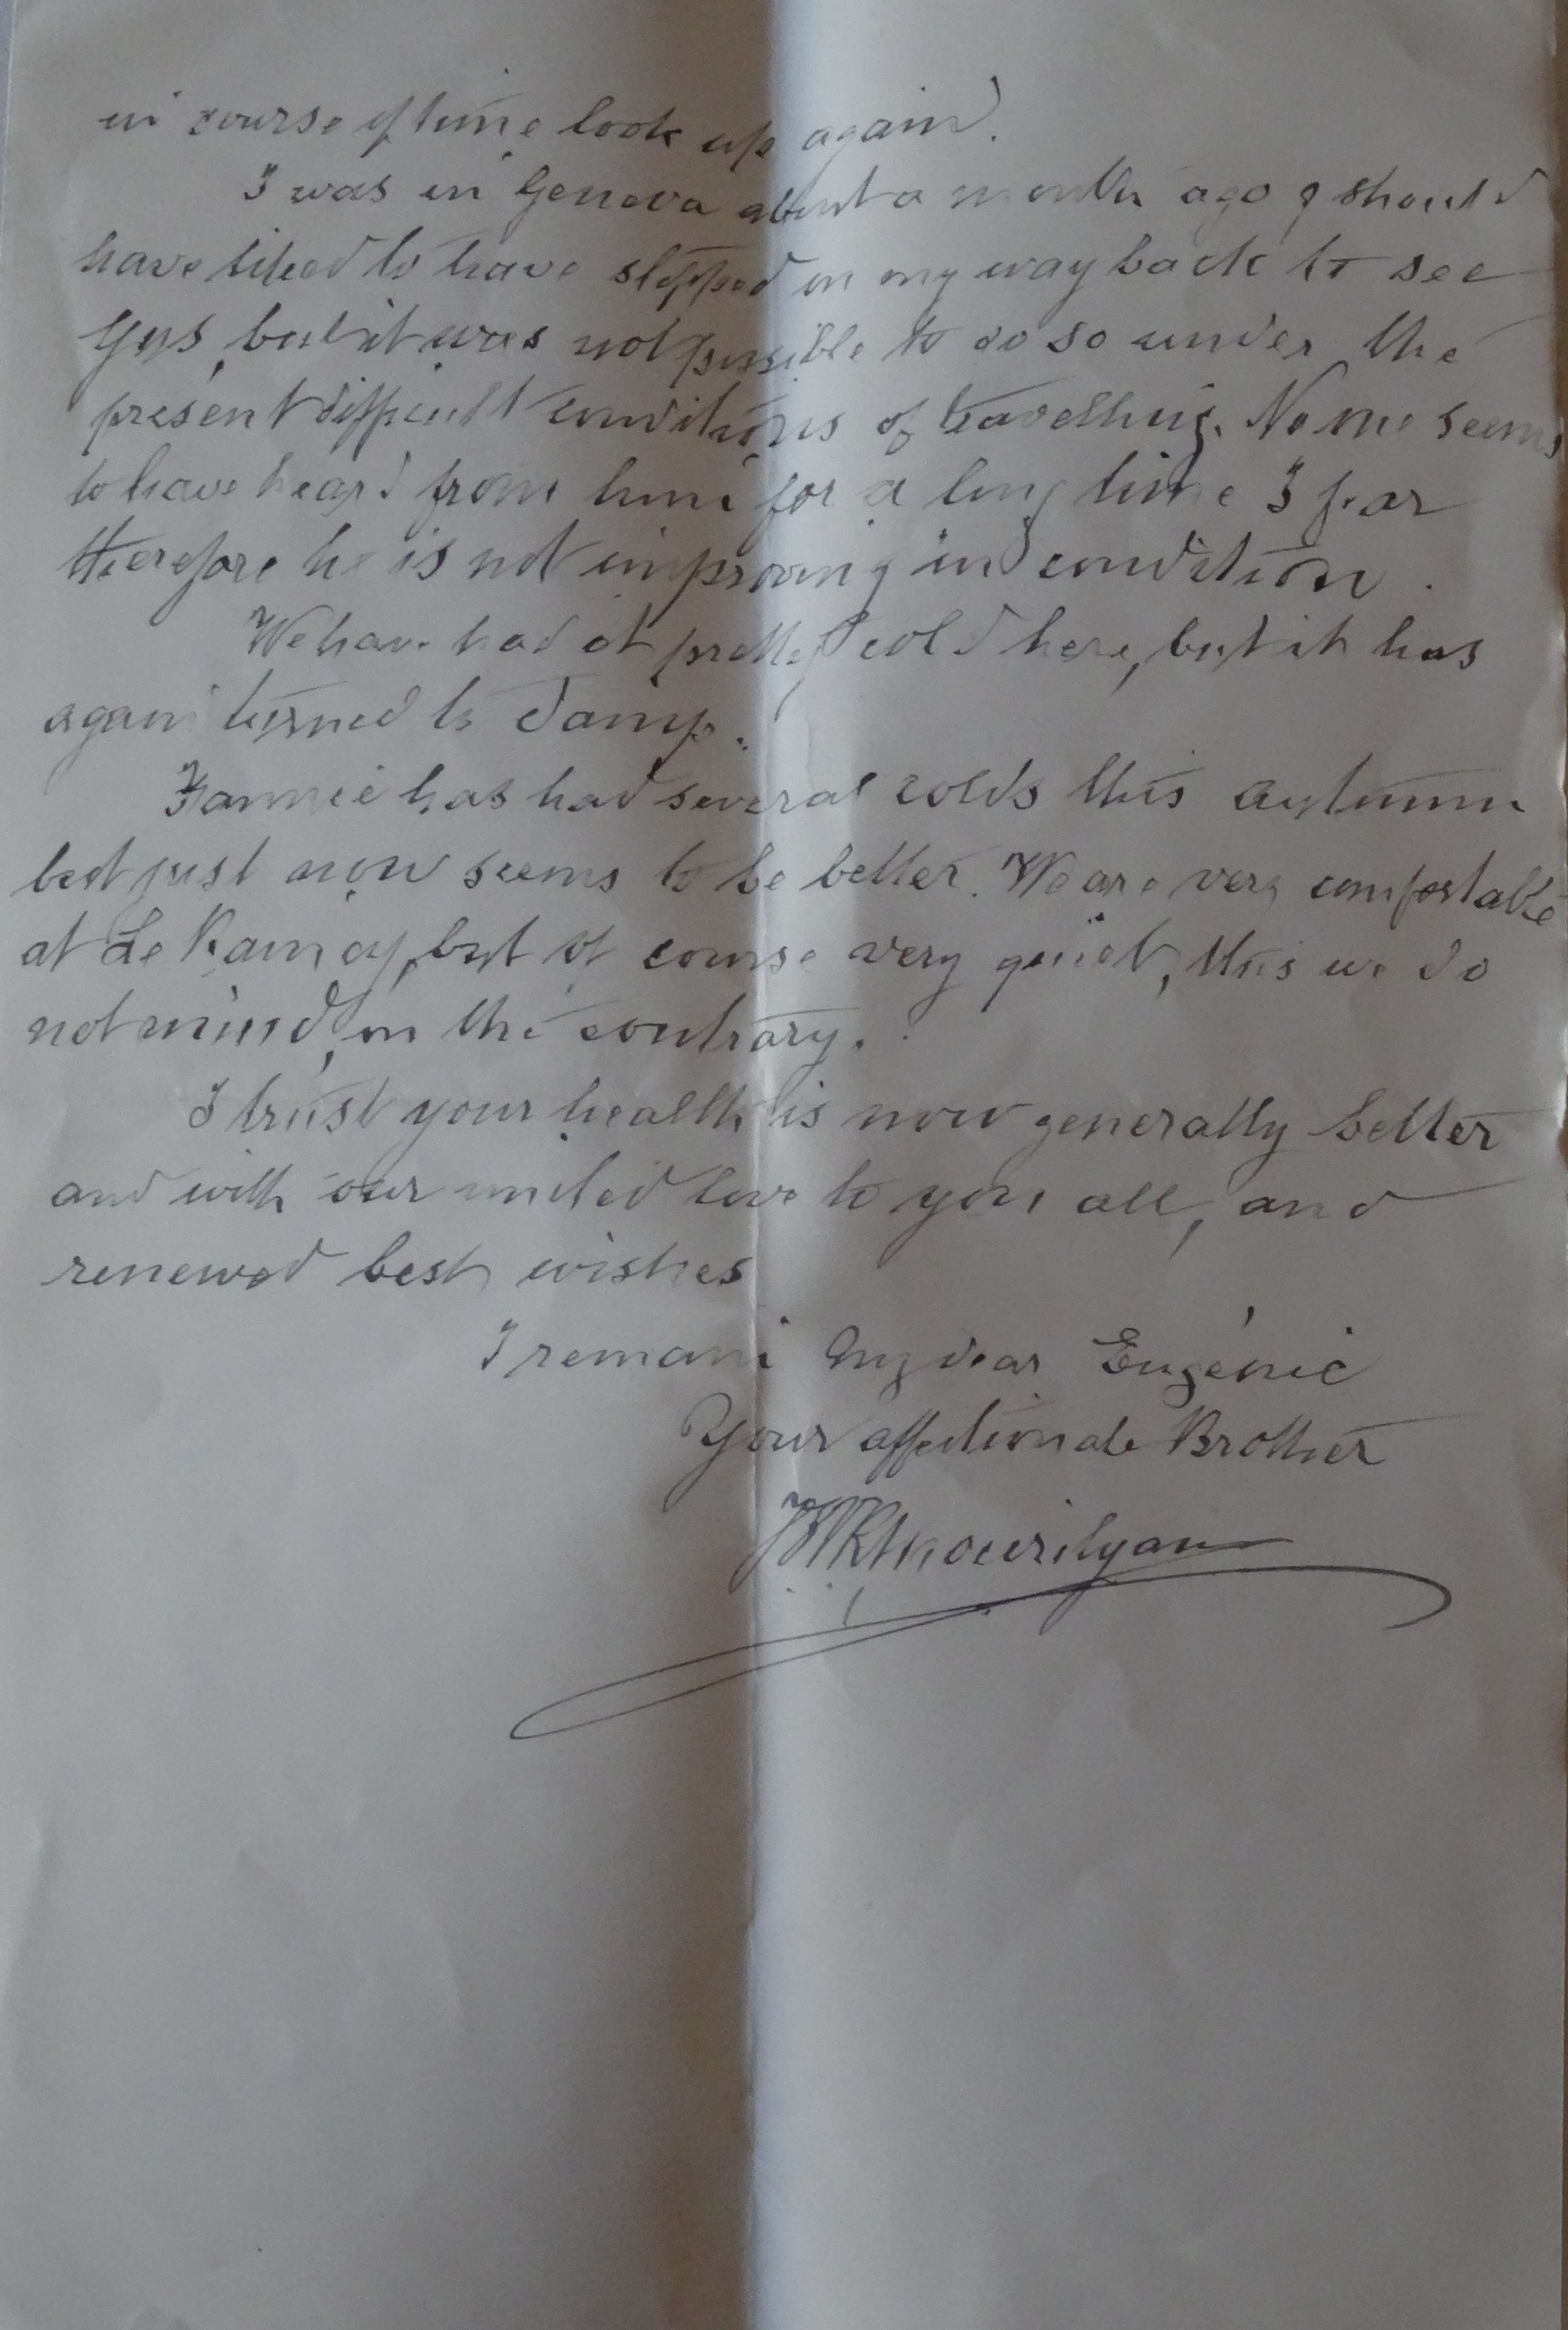 in course of time look up again.
I was in Geneva about a month ago & should
have liked to have stopped on my way back to see
Gys, but it was not possible to do so under the
present difficult conditions of travelling. No one seems
to have heard from him for a long time I fear
therefore he is not improving in condition.
We have had it pretty cold here, but it has
again turned to damp.
Fannie has had several colds this autumn
but just now seems to be better. We are very comfortable
at Le Raincy, but of course very quiet, this we do
not mind, on the contrary.
I trust your health is now generally better
and with our united love to you all, and
renewed best wishes
I remain My dear Eugénie
Your affectionate Brother